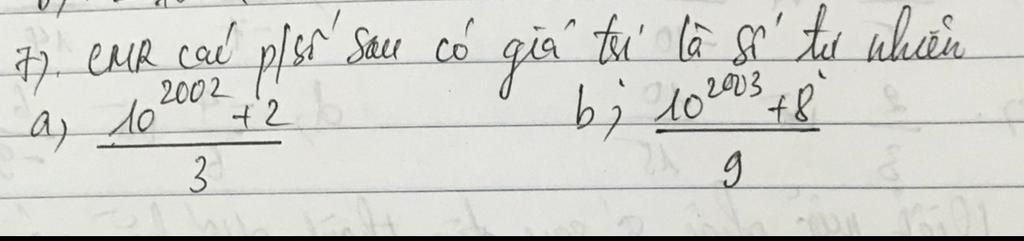 7). CMR các p/số sau có giá trị là số tự nhiên
a, (10^2002 + 2)/3 b, (10^2003 + 8)/9